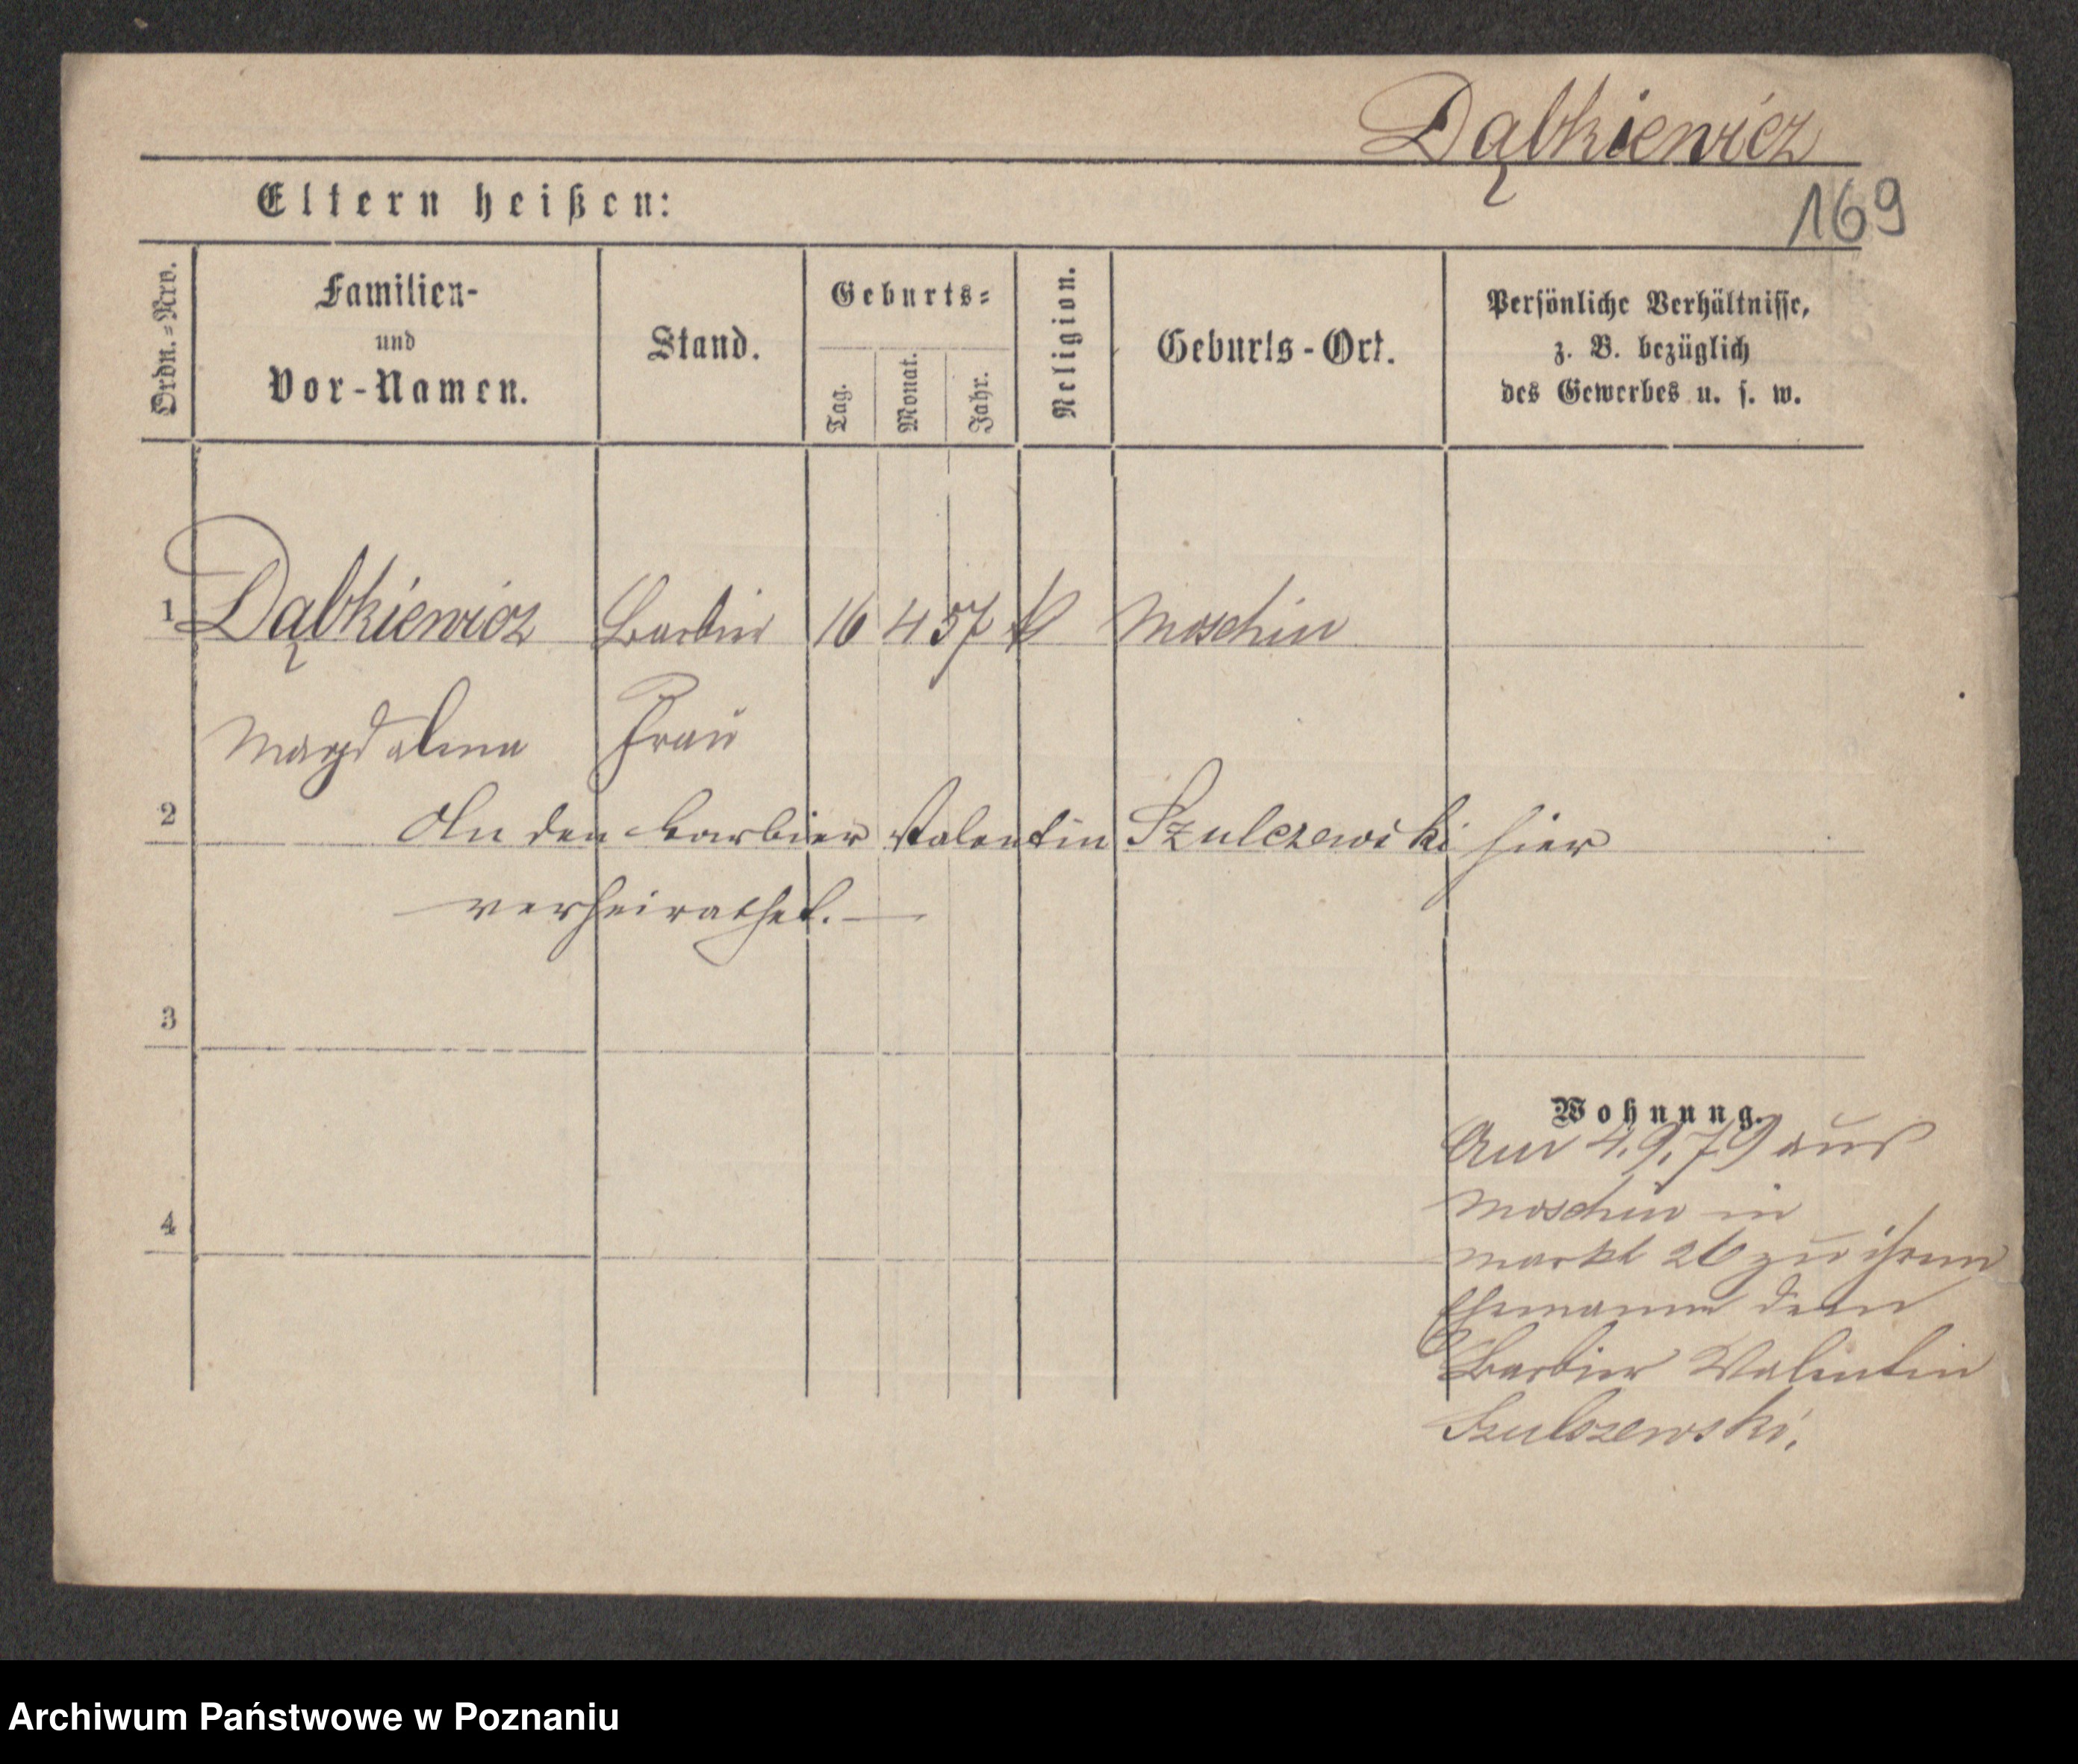 Dąbkiewicz
169
Eltern heißen:
Ordn.=Nro.
Familien-
und
Vor-Namen.
Stand.
Geburts=
Tag.
Monat.
Jahr.
Religion.
Geburts-Ort.
Persönliche Verhältnisse,
z. B. bezüglich
des Gewerbes u. s. w.
1 Dąbkiewicz Barbier 16 4 57 k Moschin
Magdalena Frau
2 An den Barbier Valentin Szulczewski hier
verheirathet.
3
4
Wohnung.
Am 4.9.79 aus
Moschin in
Markt 26 zu ihrem
Ehemanne dem
Barbier Valentin
Szulczewski.
Archiwum Państwowe w Poznaniu